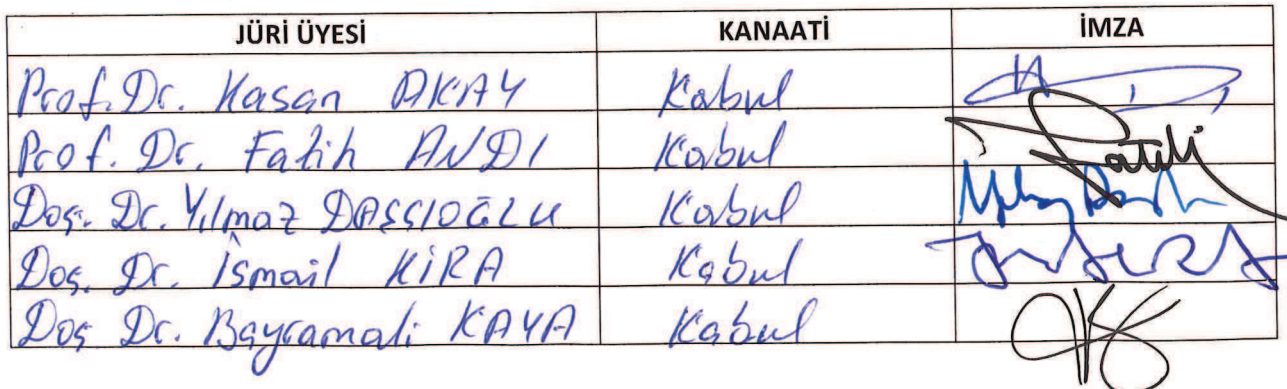 JÜRİ ÜYESİ KANAATİ İMZA
Prof. Dr. Hasan AKAY Kabul
Prof. Dr. Fatih ANDI Kabul
Doç. Dr. Yılmaz DAŞÇIOĞLU Kabul
Doç. Dr. İsmail KIRA Kabul
Doç Dr. Bayramali KAYA Kabul